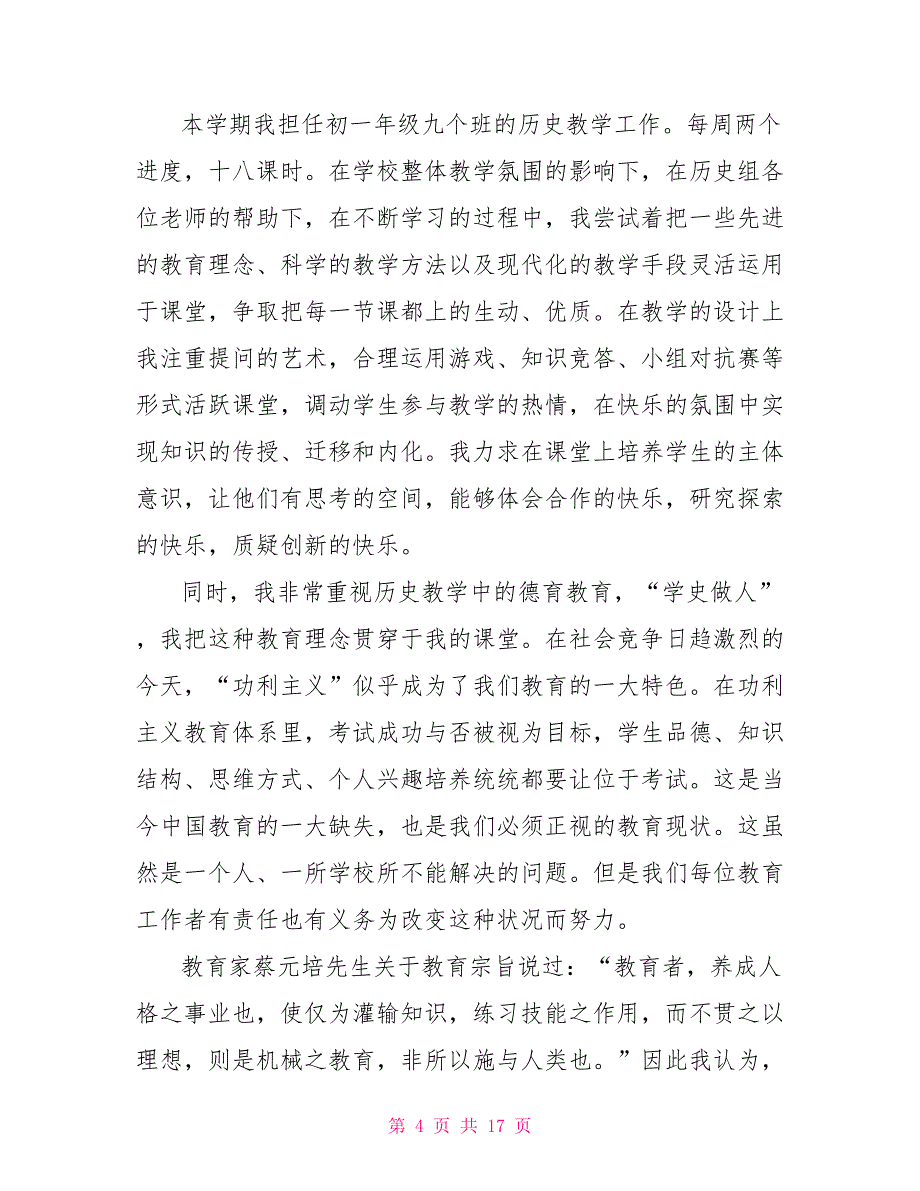 本学期我担任初一年级九个班的历史教学工作。每周两个
进度，十八课时。在学校整体教学氛围的影响下，在历史组各
位老师的帮助下，在不断学习的过程中，我尝试着把一些先进
的教育理念、科学的教学方法以及现代化的教学手段灵活运用
于课堂，争取把每一节课都上的生动、优质。在教学的设计上
我注重提问的艺术，合理运用游戏、知识竞答、小组对抗赛等
形式活跃课堂，调动学生参与教学的热情，在快乐的氛围中实
现知识的传授、迁移和内化。我力求在课堂上培养学生的主体
意识，让他们有思考的空间，能够体会合作的快乐，研究探索
的快乐，质疑创新的快乐。
同时，我非常重视历史教学中的德育教育，“学史做人”
，我把这种教育理念贯穿于我的课堂。在社会竞争日趋激烈的
今天，“功利主义”似乎成为了我们教育的一大特色。在功利
主义教育体系里，考试成功与否被视为目标，学生品德、知识
结构、思维方式、个人兴趣培养统统都要让位于考试。这是当
今中国教育的一大缺失，也是我们必须正视的教育现状。这虽
然是一个人、一所学校所不能解决的问题。但是我们每位教育
工作者有责任也有义务为改变这种状况而努力。
教育家蔡元培先生关于教育宗旨说过：“教育者，养成人
格之事业也，使仅为灌输知识，练习技能之作用，而不贯之以
理想，则是机械之教育，非所以施与人类也。”因此我认为，
第 4 页 共 17 页